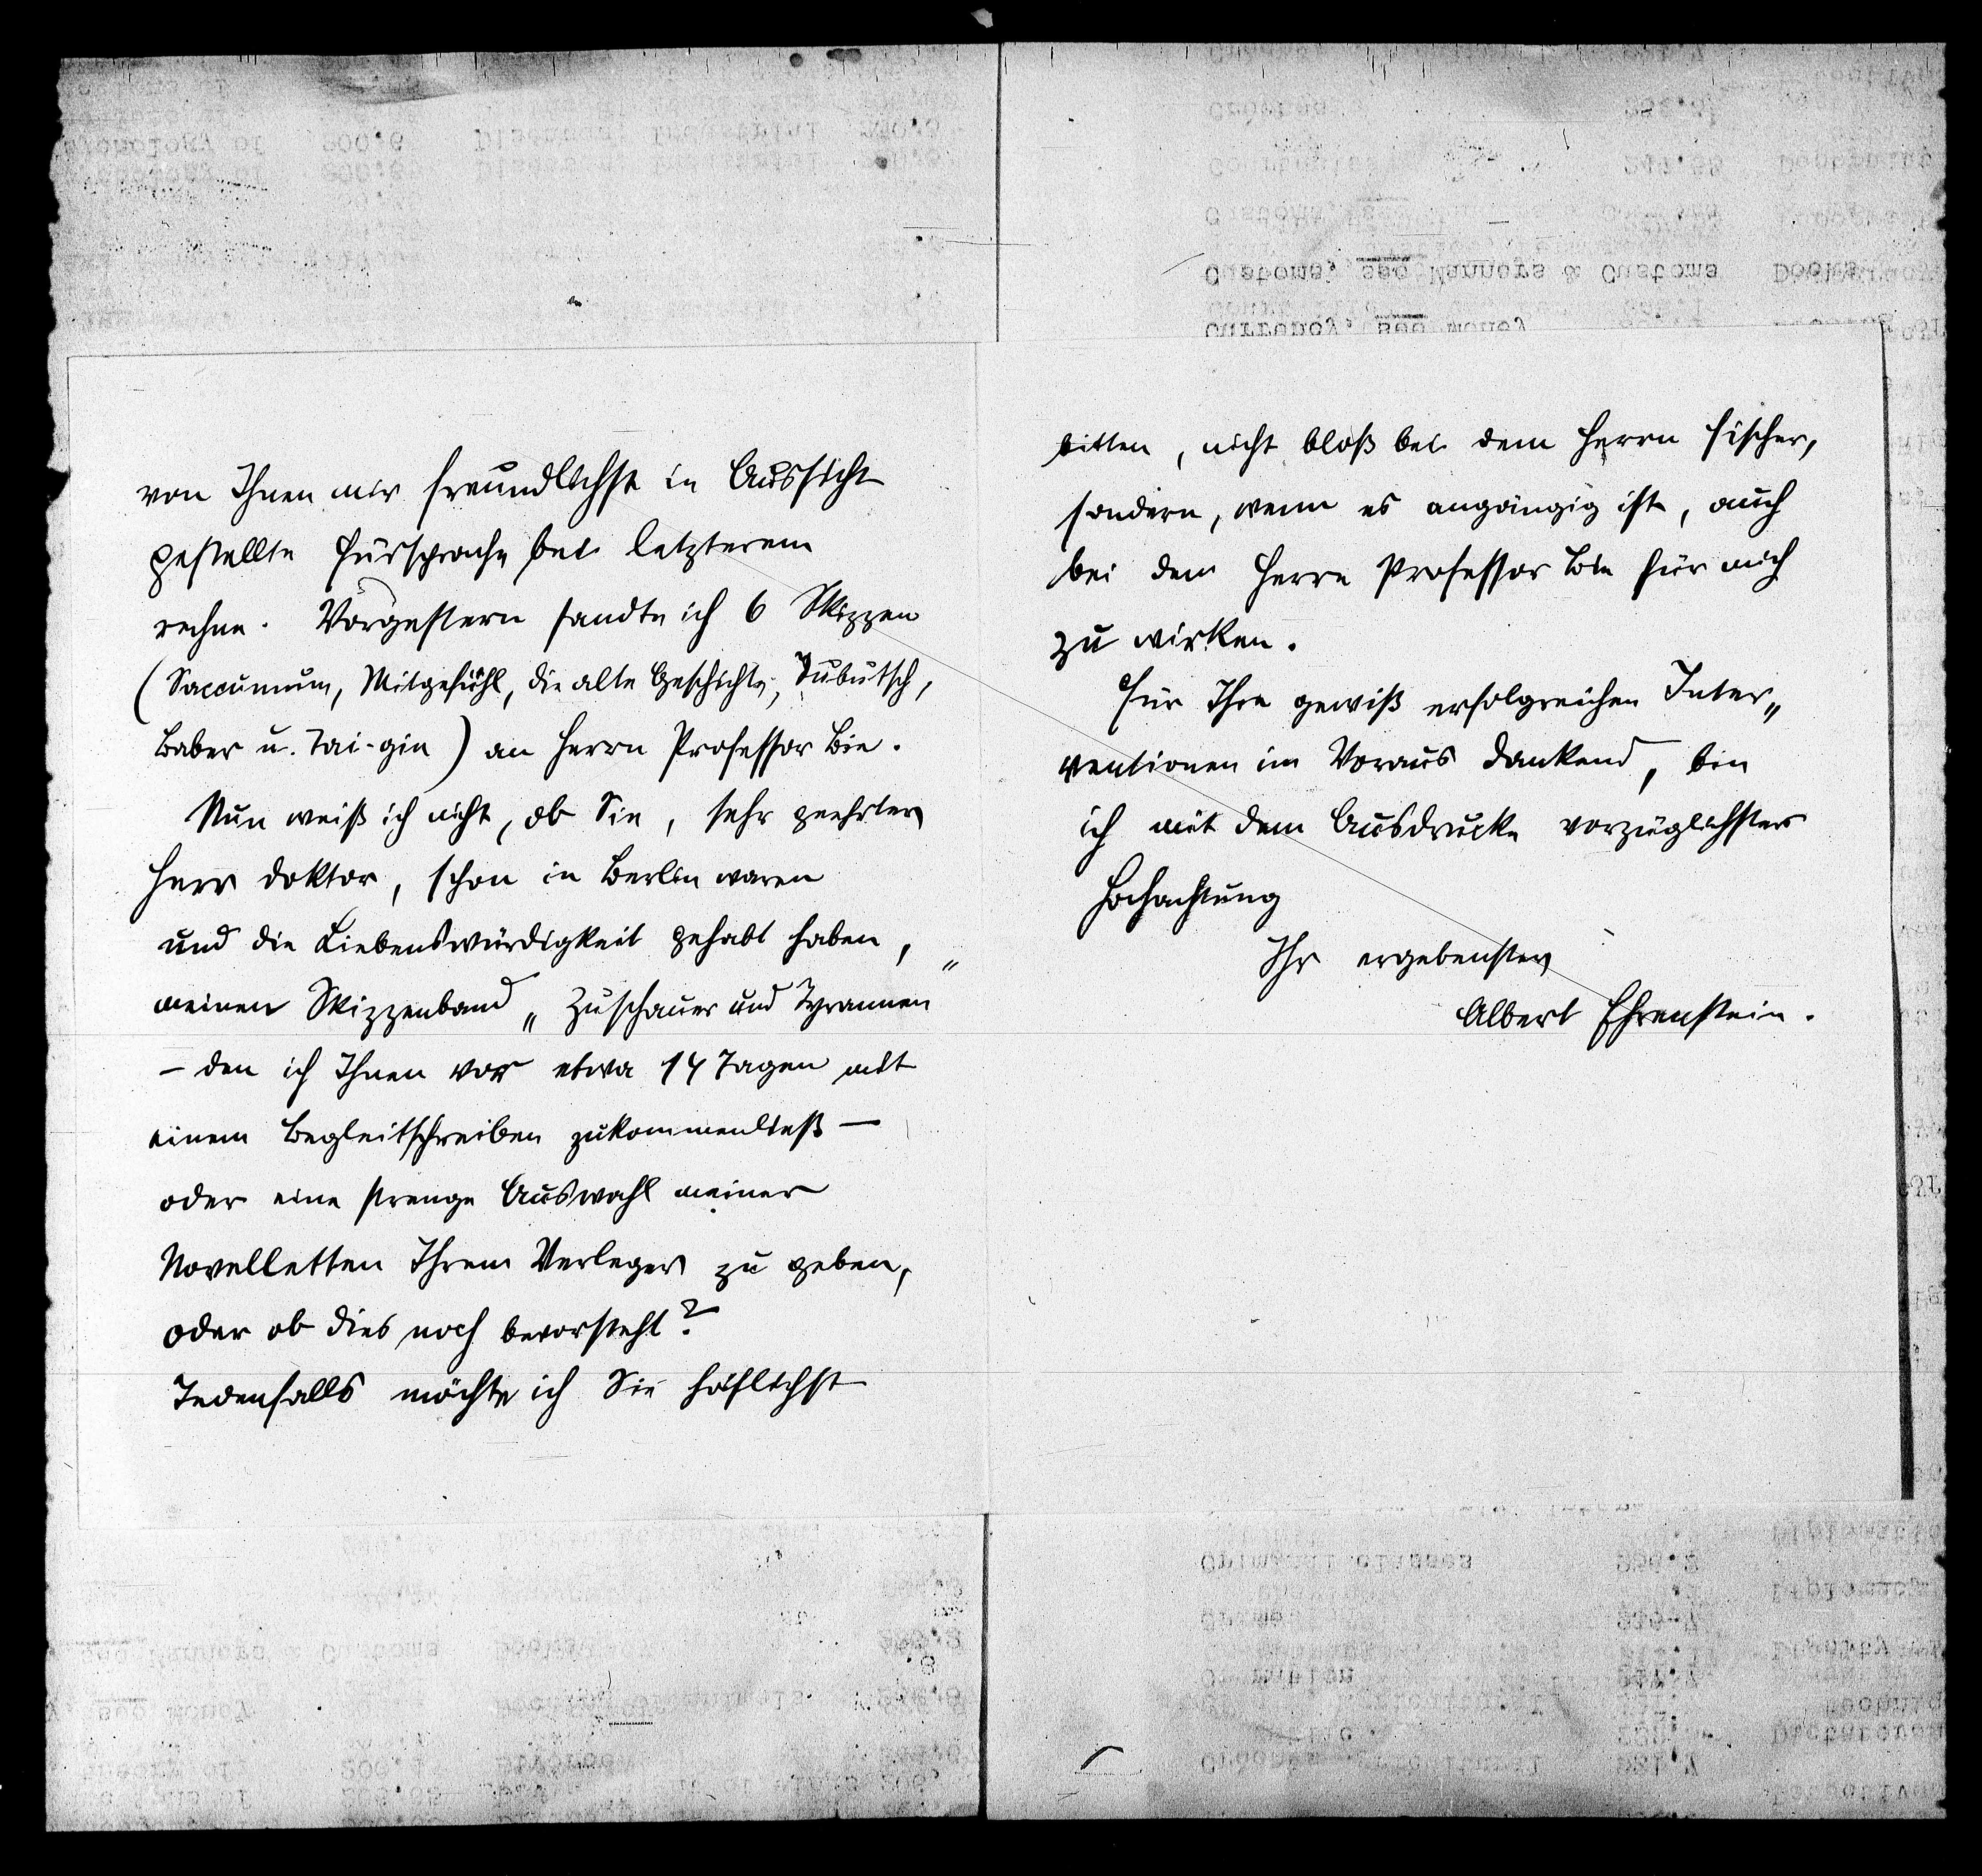 von Ihnen mir freundlichst in Aussicht
gestellte Fürsprache bei letzterem
rechne. Vorgestern sandte ich 6 Skizzen
(Saccumum, Mitgefühl, die alte Geschichte, Tubutsch,
Baber u. Tai-gin) an Herrn Professor Bie.
Nun weiß ich nicht, ob Sie, sehr geehrter
Herr Doktor, schon in Berlin waren
und die Liebenswürdigkeit gehabt haben,
meinen Skizzenband „Zuschauer und Tyrannen"
– den ich Ihnen vor etwa 14 Tagen mit
einem Begleitschreiben zukommenließ –
oder eine strenge Auswahl meiner
Novelletten Ihrem Verleger zu geben,
oder ob dies noch bevorsteht?
Jedenfalls möchte ich Sie höflichst
bitten, nicht bloß bei dem Herrn Fischer,
sondern, wenn es angängig ist, auch
bei dem Herrn Professor Bie für mich
zu wirken.
Für Ihre gewiß erfolgreichen Inter„
ventionen im Voraus dankend, bin
ich mit dem Ausdrucke vorzüglichster
Hochachtung
Ihr ergebenster
Albert Ehrenstein.